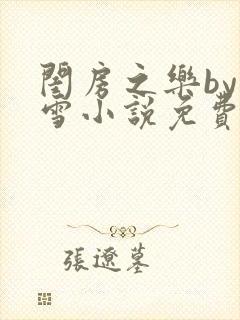 閨房之樂by
雪小說免費
張遼墓